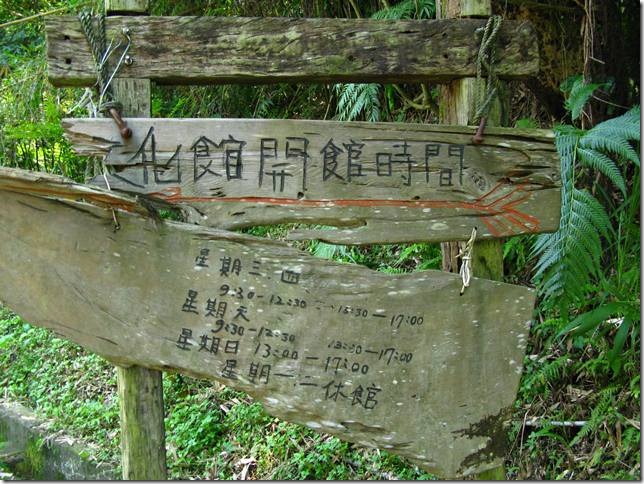 文化館開館時間
星期三 四
9:30-12:30 13:30-17:00
星期
9:30-12:30 13:30-17:00
星期日 13:00-17:00
星期一.二休館